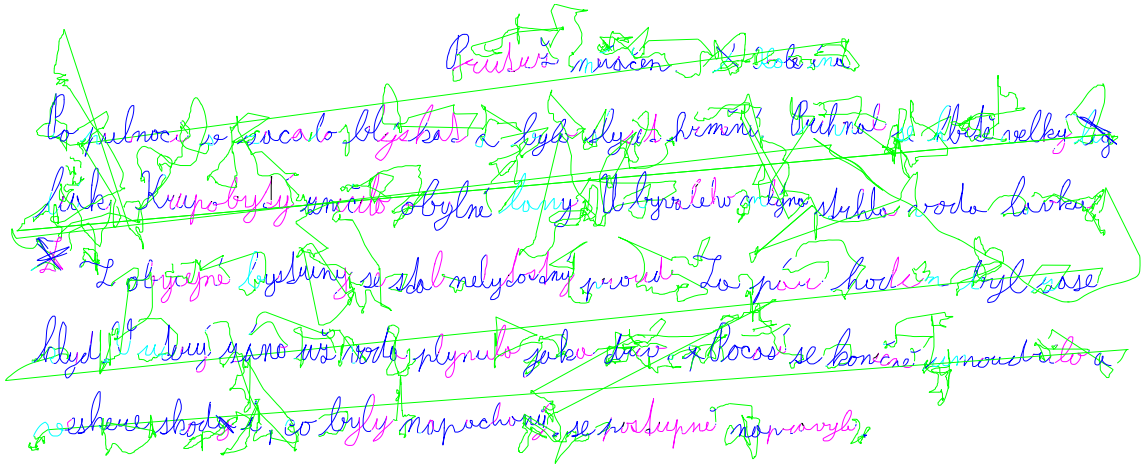 mračen
Po pulnoci se zacalo blýskat a bylo slyšet hrmění. Prihnal se hbitě velký ly
liák. Krupobyty uničilo obylné lany. U byvalého mlýna strhla voda lavku
Z obyčejné bystřiny se stal nelytostný proud. Za pár hodin byl zase
klyd. V uterý ráno už voda plynula jako dřiv. Pocasí se konečně umoudrilo a
veskere skody, co byly napachony, se postupně napravyli.